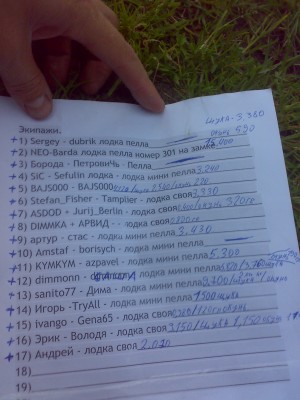 щука-3.380
окунь 530
Экипажи.
+1) Sergey - dubrik лодка пелла
15,000
+2) NEO-Barda лодка пелла номер 301 на замке
+3) Борода - Петрович% - Пелла
+4) SIC - Sefulin лодка - лодка мини пелла 3.240
+5) BAJS000 - BAJS000
+6) Stefan_Fisher - Tamplier - лодка своя 3.930
+7) ASDOD + Jurij_Berlin - лодка своя
+8) DIMMKA + АРВИД - - лодка своя
+9) артур - стас - лодка мини пелла 3.430
+10) Amstaf - borisych - лодка мини пелла
+11) KYMKYM - azpavel - лодка мини пелла 5.300
+12) dimmonn - лодка мини пелла
+13) sanito77 - Дима - лодка мини пелла 3.700
+14) Игорь -TryAll - лодка мини пелла 1500 щука
+15) Ivango - Gena65 - лодка своя
+16) Эрик - Володя - лодка своя 3.150
+17) Андрей - лодка своя 2.010
18)
19)